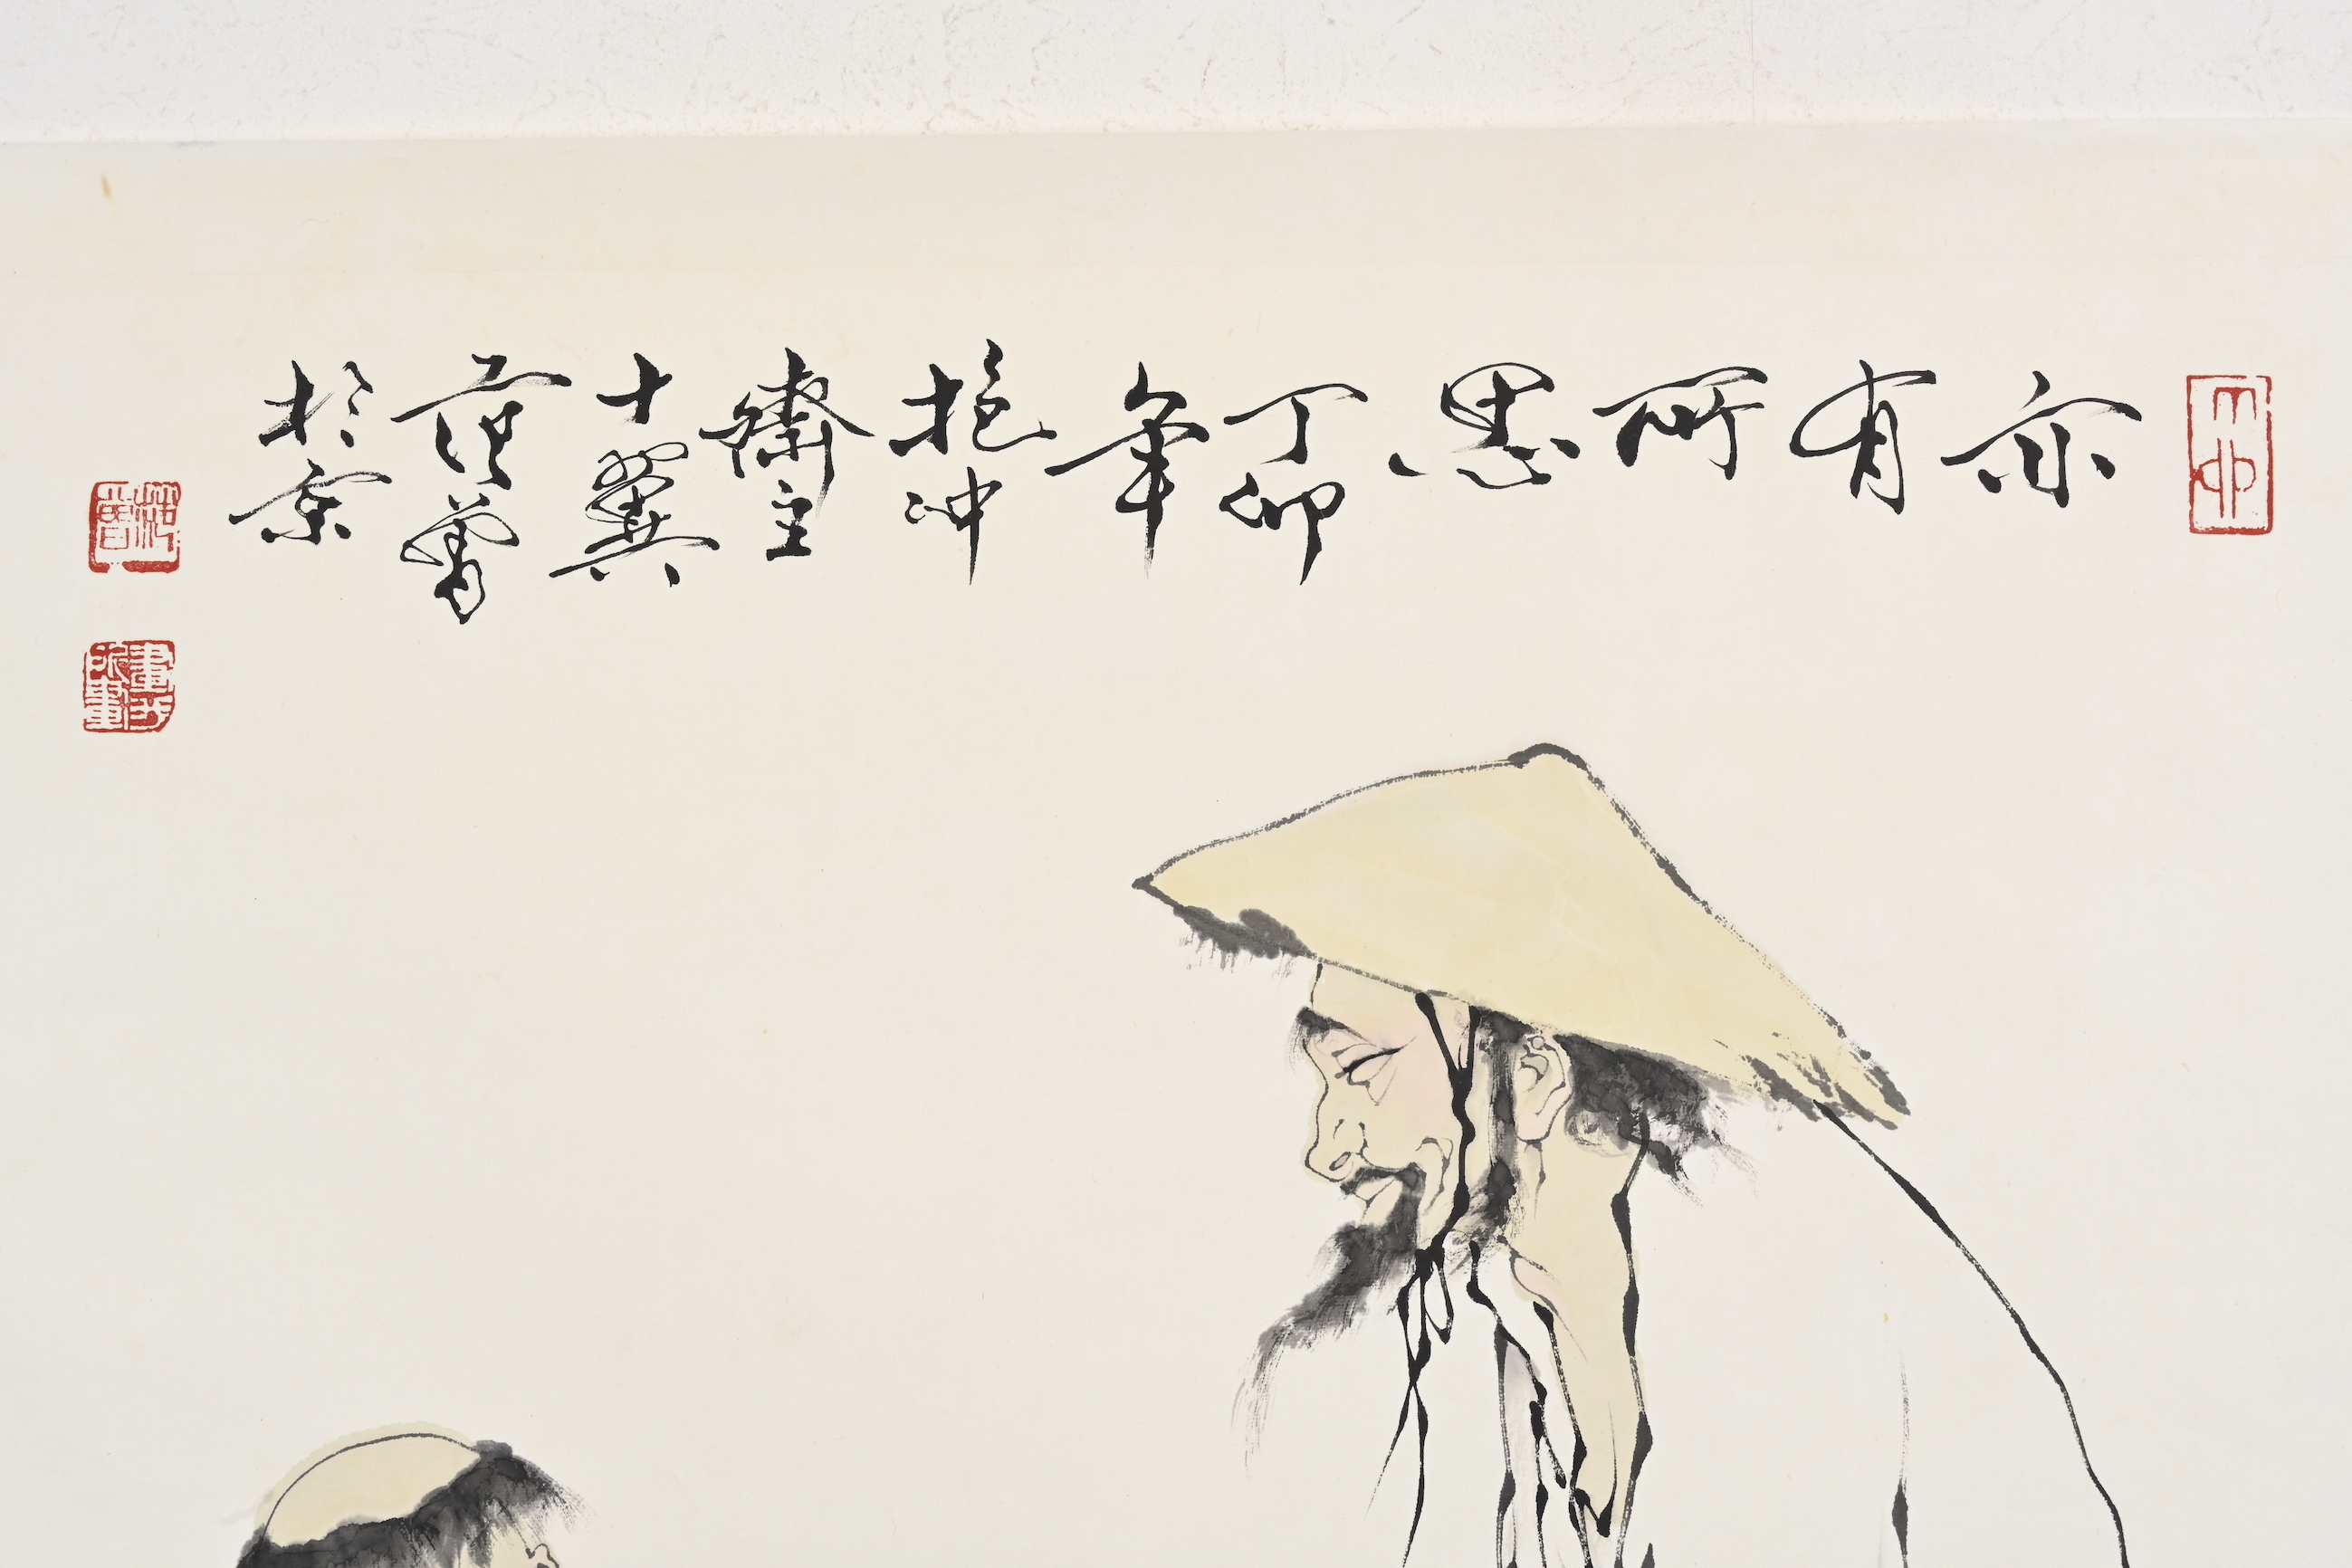 亦
有
所
思
丁卯
年
抱冲
齋主
十翼
范曾
於京
范曾